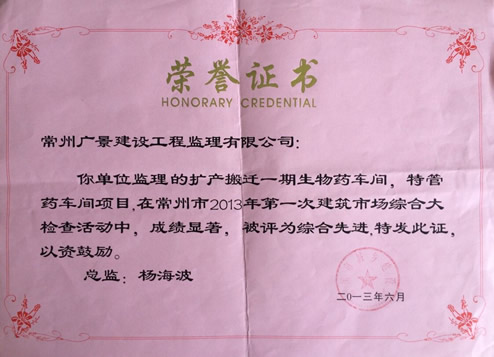 荣誉证书
HONORARY CREDENTIAL
常州广景建设工程监理有限公司:
你单位监理的扩产搬迁一期生物药车间，特管
药车间项目,在常州市2013年第一次建筑市场综合大
检查活动中，成绩显著，被评为综合先进,特发此证，
以资鼓励。
总监：杨海波
二〇一三年六月